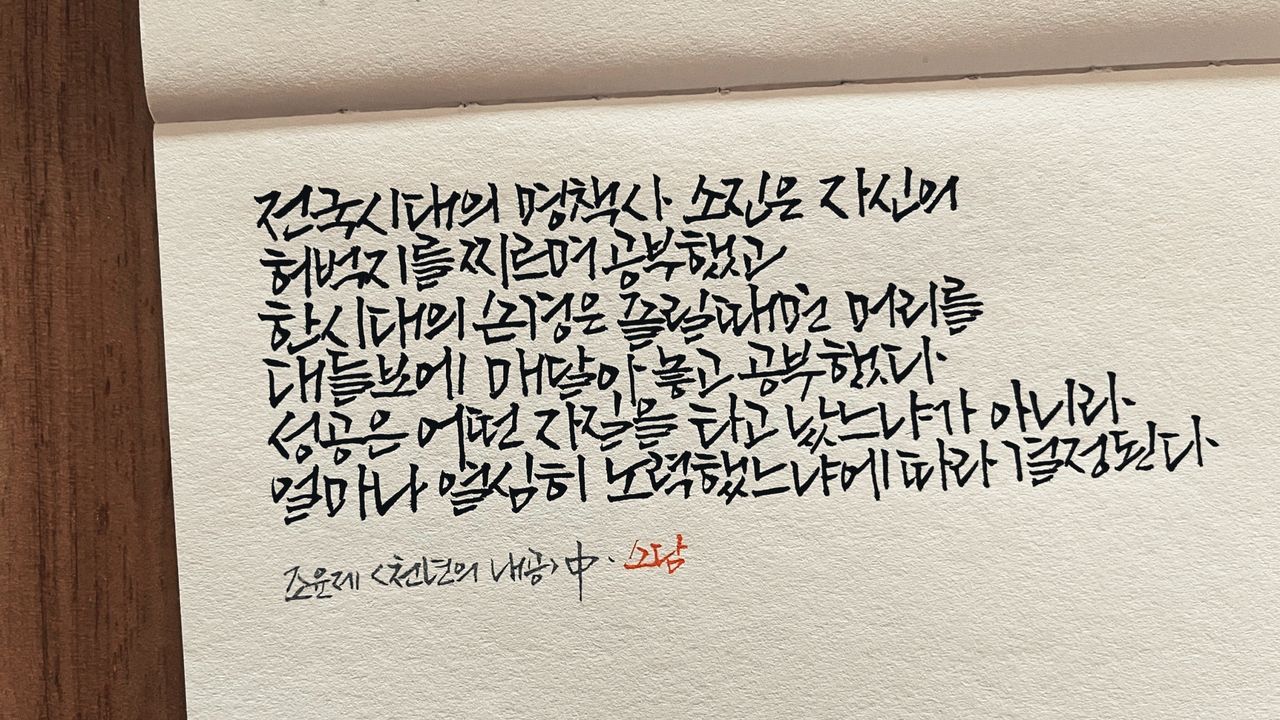 전국시대의 명책사 소진은 자신의
허벅지를 찌르며 공부했고
한시대의 손경은 졸릴때면 머리를
대들보에 매달아 놓고 공부했다.
성공은 어떤 자질을 타고 났느냐가 아니라
얼마나 열심히 노력했느냐에 따라 결정된다.
조윤제 <천년의 내공> 中. 소담